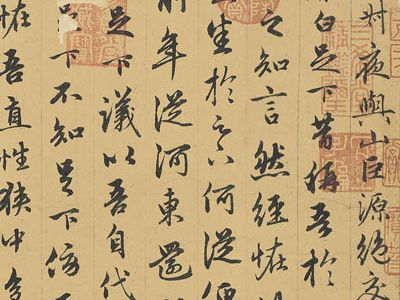 叔夜與山巨源絕交
白足下昔稱吾於
之知言然經怪
於何從便
前年從河東還
足下議以吾自代
足下不知足下傍
怪吾直性狹中多